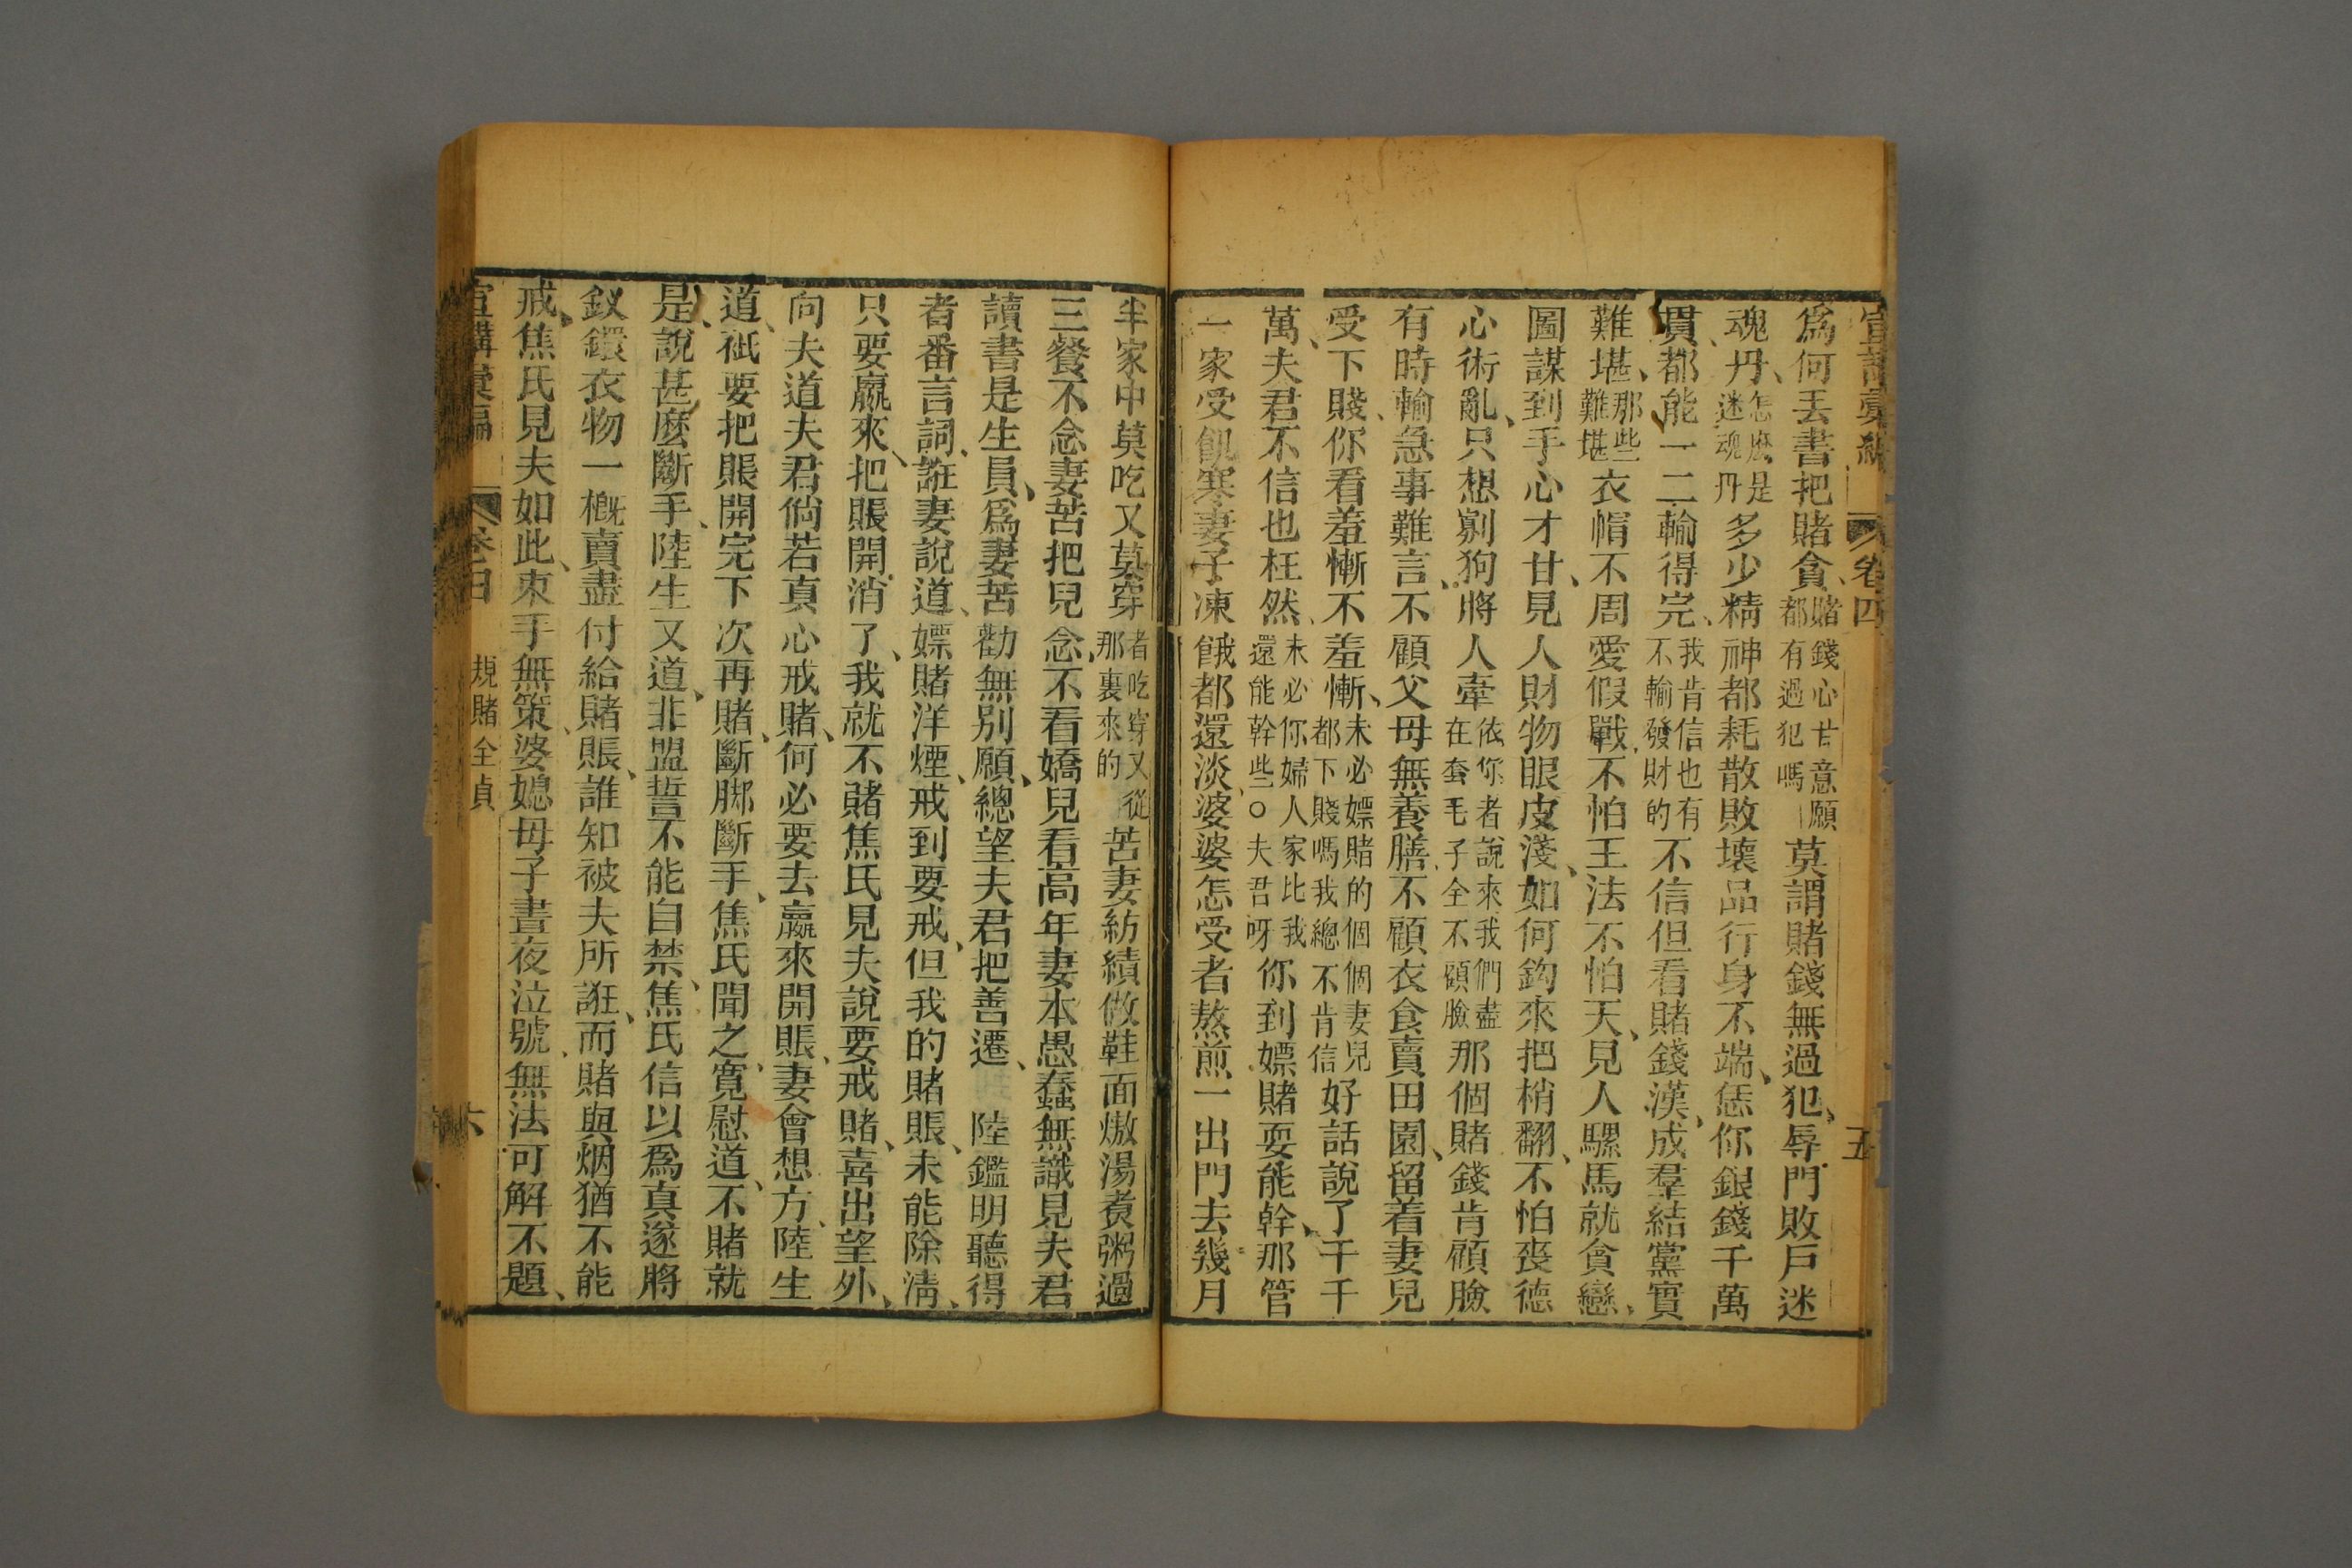 宣講彙編 卷四 五
爲何丟書把賭貪、賭錢心甘意願都有過犯嗎莫謂賭錢無過犯、辱門敗戶迷
魂丹、怎麽是迷魂丹多少精神都耗散敗壞品行身不端、恁你銀錢千萬
貫、都能一二輸得完、我肯信也有不輸發財的不信但看賭錢漢、成羣結黨實
難堪、那些難堪衣帽不周愛假戰、不怕王法不怕天、見人騾馬就貪戀、
圖謀到手心才甘、見人財物眼皮淺、如何鈎來把梢翻、不怕喪德
心術亂、只想剐狗將人牽依你者說來我們盡在套毛子全不顧臉那個賭錢肯顧臉
有時輸急事難言、不顧父母無養膳、不顧衣食賣田園、留着妻兒
受下賤、你看羞慚不羞慚、未必嫖賭的個個妻兒都下賤嗎我總不肯信好話說了千千
萬、夫君不信也枉然、未必你婦人家比我還能幹些○夫君呀你到嫖賭耍能幹、那管
一家受飢寒妻子凍餓都還淡、婆婆怎受者熬煎一出門去幾月
半家中莫吃又莫穿者吃穿又從那裏來的苦妻紡績做鞋面燉湯煑粥過
三餐不念妻苦把兒念、不看嬌兒看高年妻本愚蠢無識見夫君
讀書是生員、爲妻苦勸無別願、總望夫君把善遷、 陸鑑明聽得
者番言詞、誑妻說道、嫖賭洋煙、戒到要戒、但我的賭賬、未能除淸、
只要贏來、把賬開消了、我就不賭焦氏見夫說要戒賭、喜出望外、
向夫道夫君倘若真心戒賭、何必要去贏來開賬、妻會想方、陸生
道、祇要把賬開完下次再賭、斷脚斷手、焦氏聞之、寬慰道、不賭就
是、說甚麽斷手、陸生又道、非盟誓不能自禁、焦氏信以爲真遂將
釵鐶衣物一概賣盡付給賭賬、誰知被夫所誑、而賭與烟猶不能
戒、焦氏見夫如此、束手無策、婆媳母子晝夜泣號、無法可解不題、
宣講彙編 卷四 規賭全貞 六